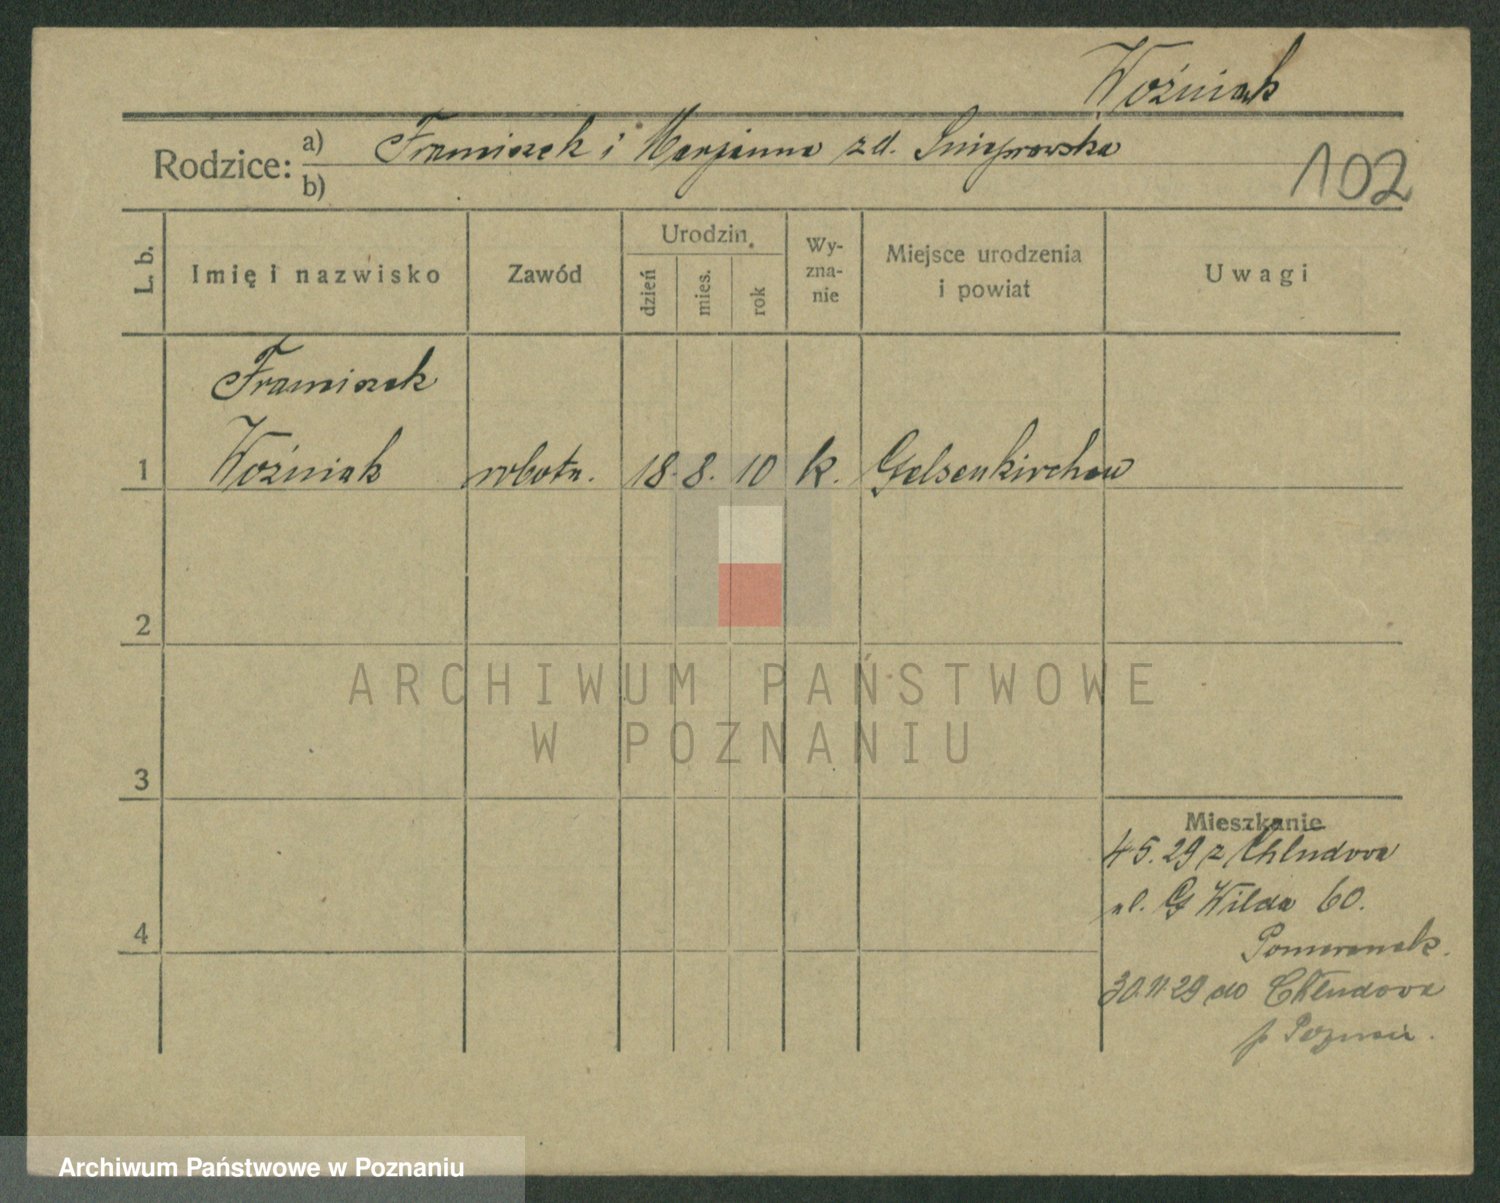 Woźniak
Rodzice: a) Franciszek i Marjanna zd.
b)
102
L. b.
Imię i nazwisko
Zawód
Urodzin.
dzień
mies.
rok
Wy-
zna-
nie
Miejsce urodzenia
i powiat
Uwagi
Franciszek
1 Woźniak robotn. 18. 8. 10 k. Gelsenkirchen
2
ARCHIWUM PAŃSTWOWE
W POZNANIU
3
Mieszkanie
4.5.29 z Chludowa
ul. G Wilda 60.
4
30.11.29 do Chludowa
p Poznań.
Archiwum Państwowe w Poznaniu